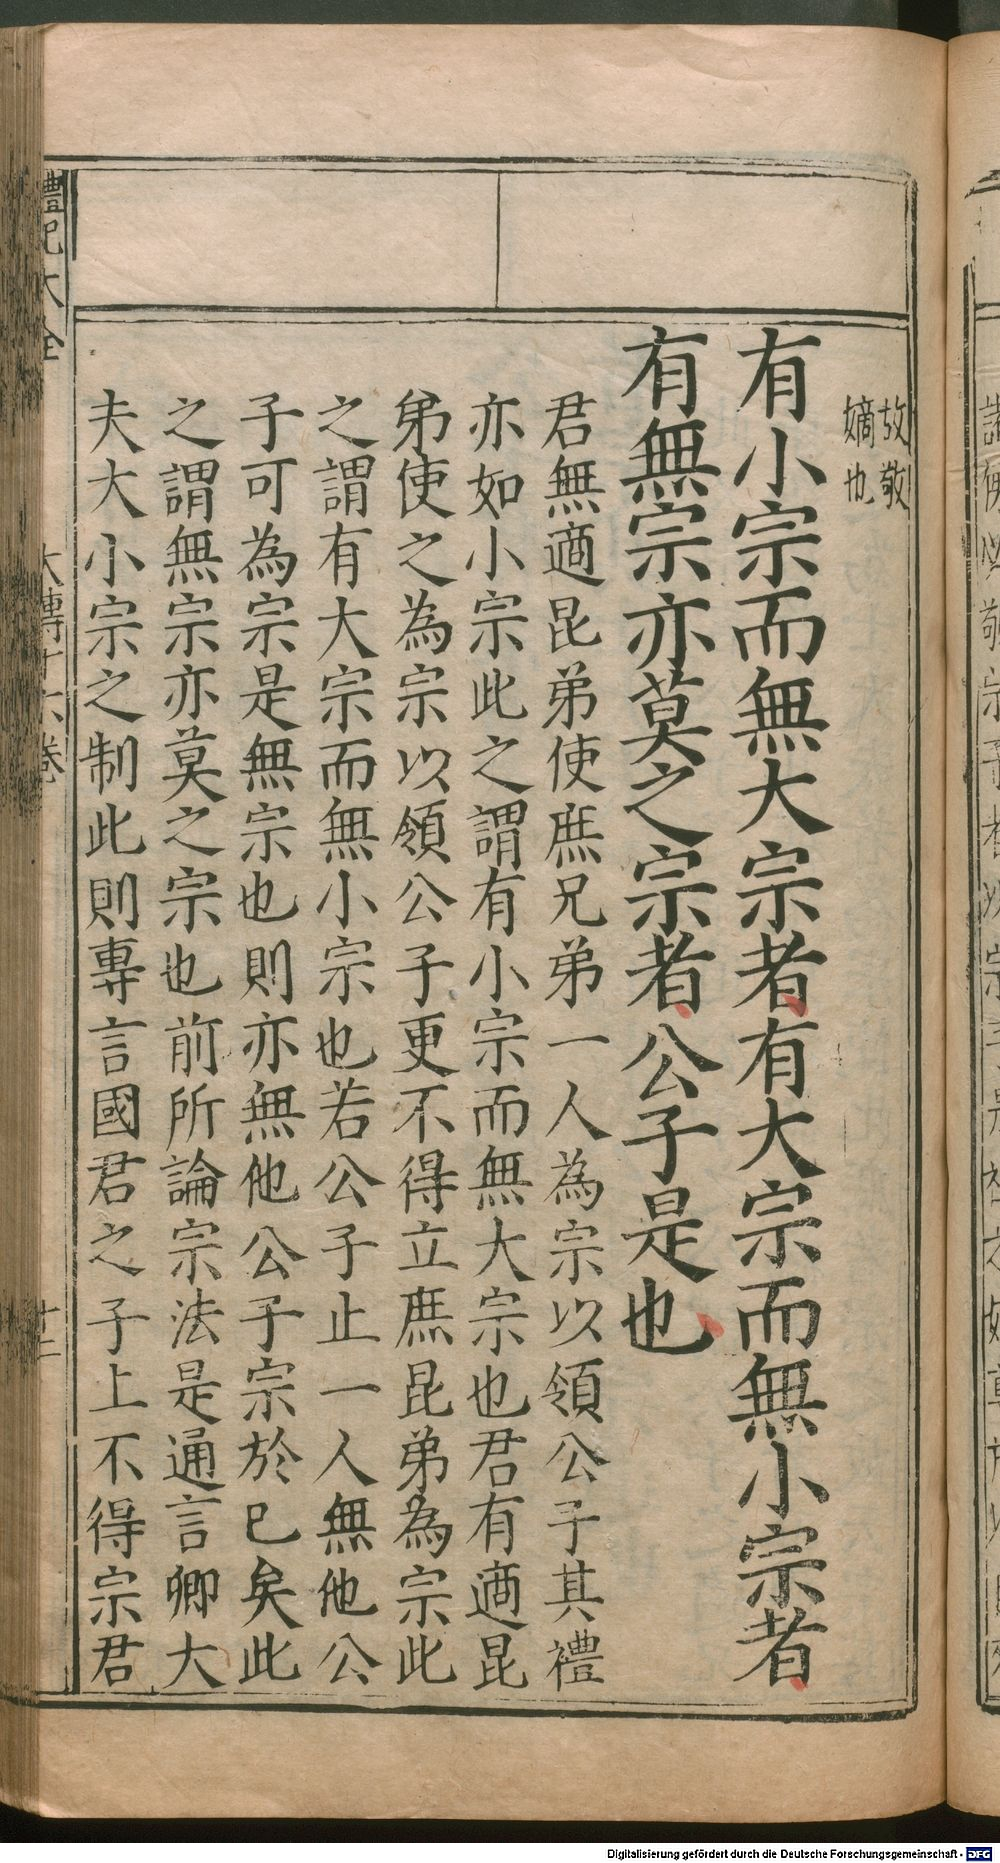 故敬
嫡也
有小宗而無大宗者有大宗而無小宗者
有無宗亦莫之宗者公子是也
君無適昆弟使庶兄弟一人為宗以領公子其禮
亦如小宗此之謂有小宗而無大宗也君有適昆
弟使之為宗以領公子更不得立庶昆弟為宗此
之謂有大宗而無小宗也若公子止一人無他公
子可為宗是無宗也則亦無他公子宗於已矣此
之謂無宗亦莫之宗也前所論宗法是通言卿大
夫大小宗之制此則專言國君之子上不得宗君
禮記大全
大傳十六卷
十二
Digitalisierung gefördert durch die Deutsche Forschungsgemeinschaft - DFG